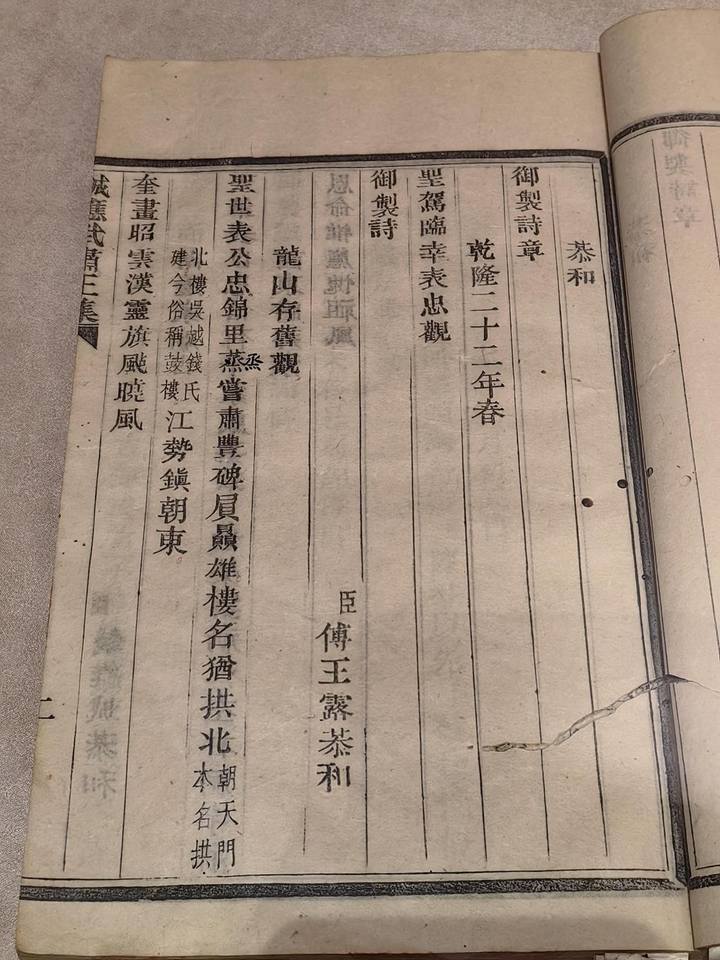 恭和
御製詩章
乾隆二十二年春
聖駕臨幸表忠觀
御製詩
臣傅王露恭和
龍山存舊觀
聖世表公忠錦里蒸烝嘗肅豐碑屓贔雄樓名猶拱北朝天門本名拱
北樓吳越錢氏建今俗稱鼓樓江勢鎮朝東
奎畫昭雲漢靈旗颭曉風
誠應武肅王集
二